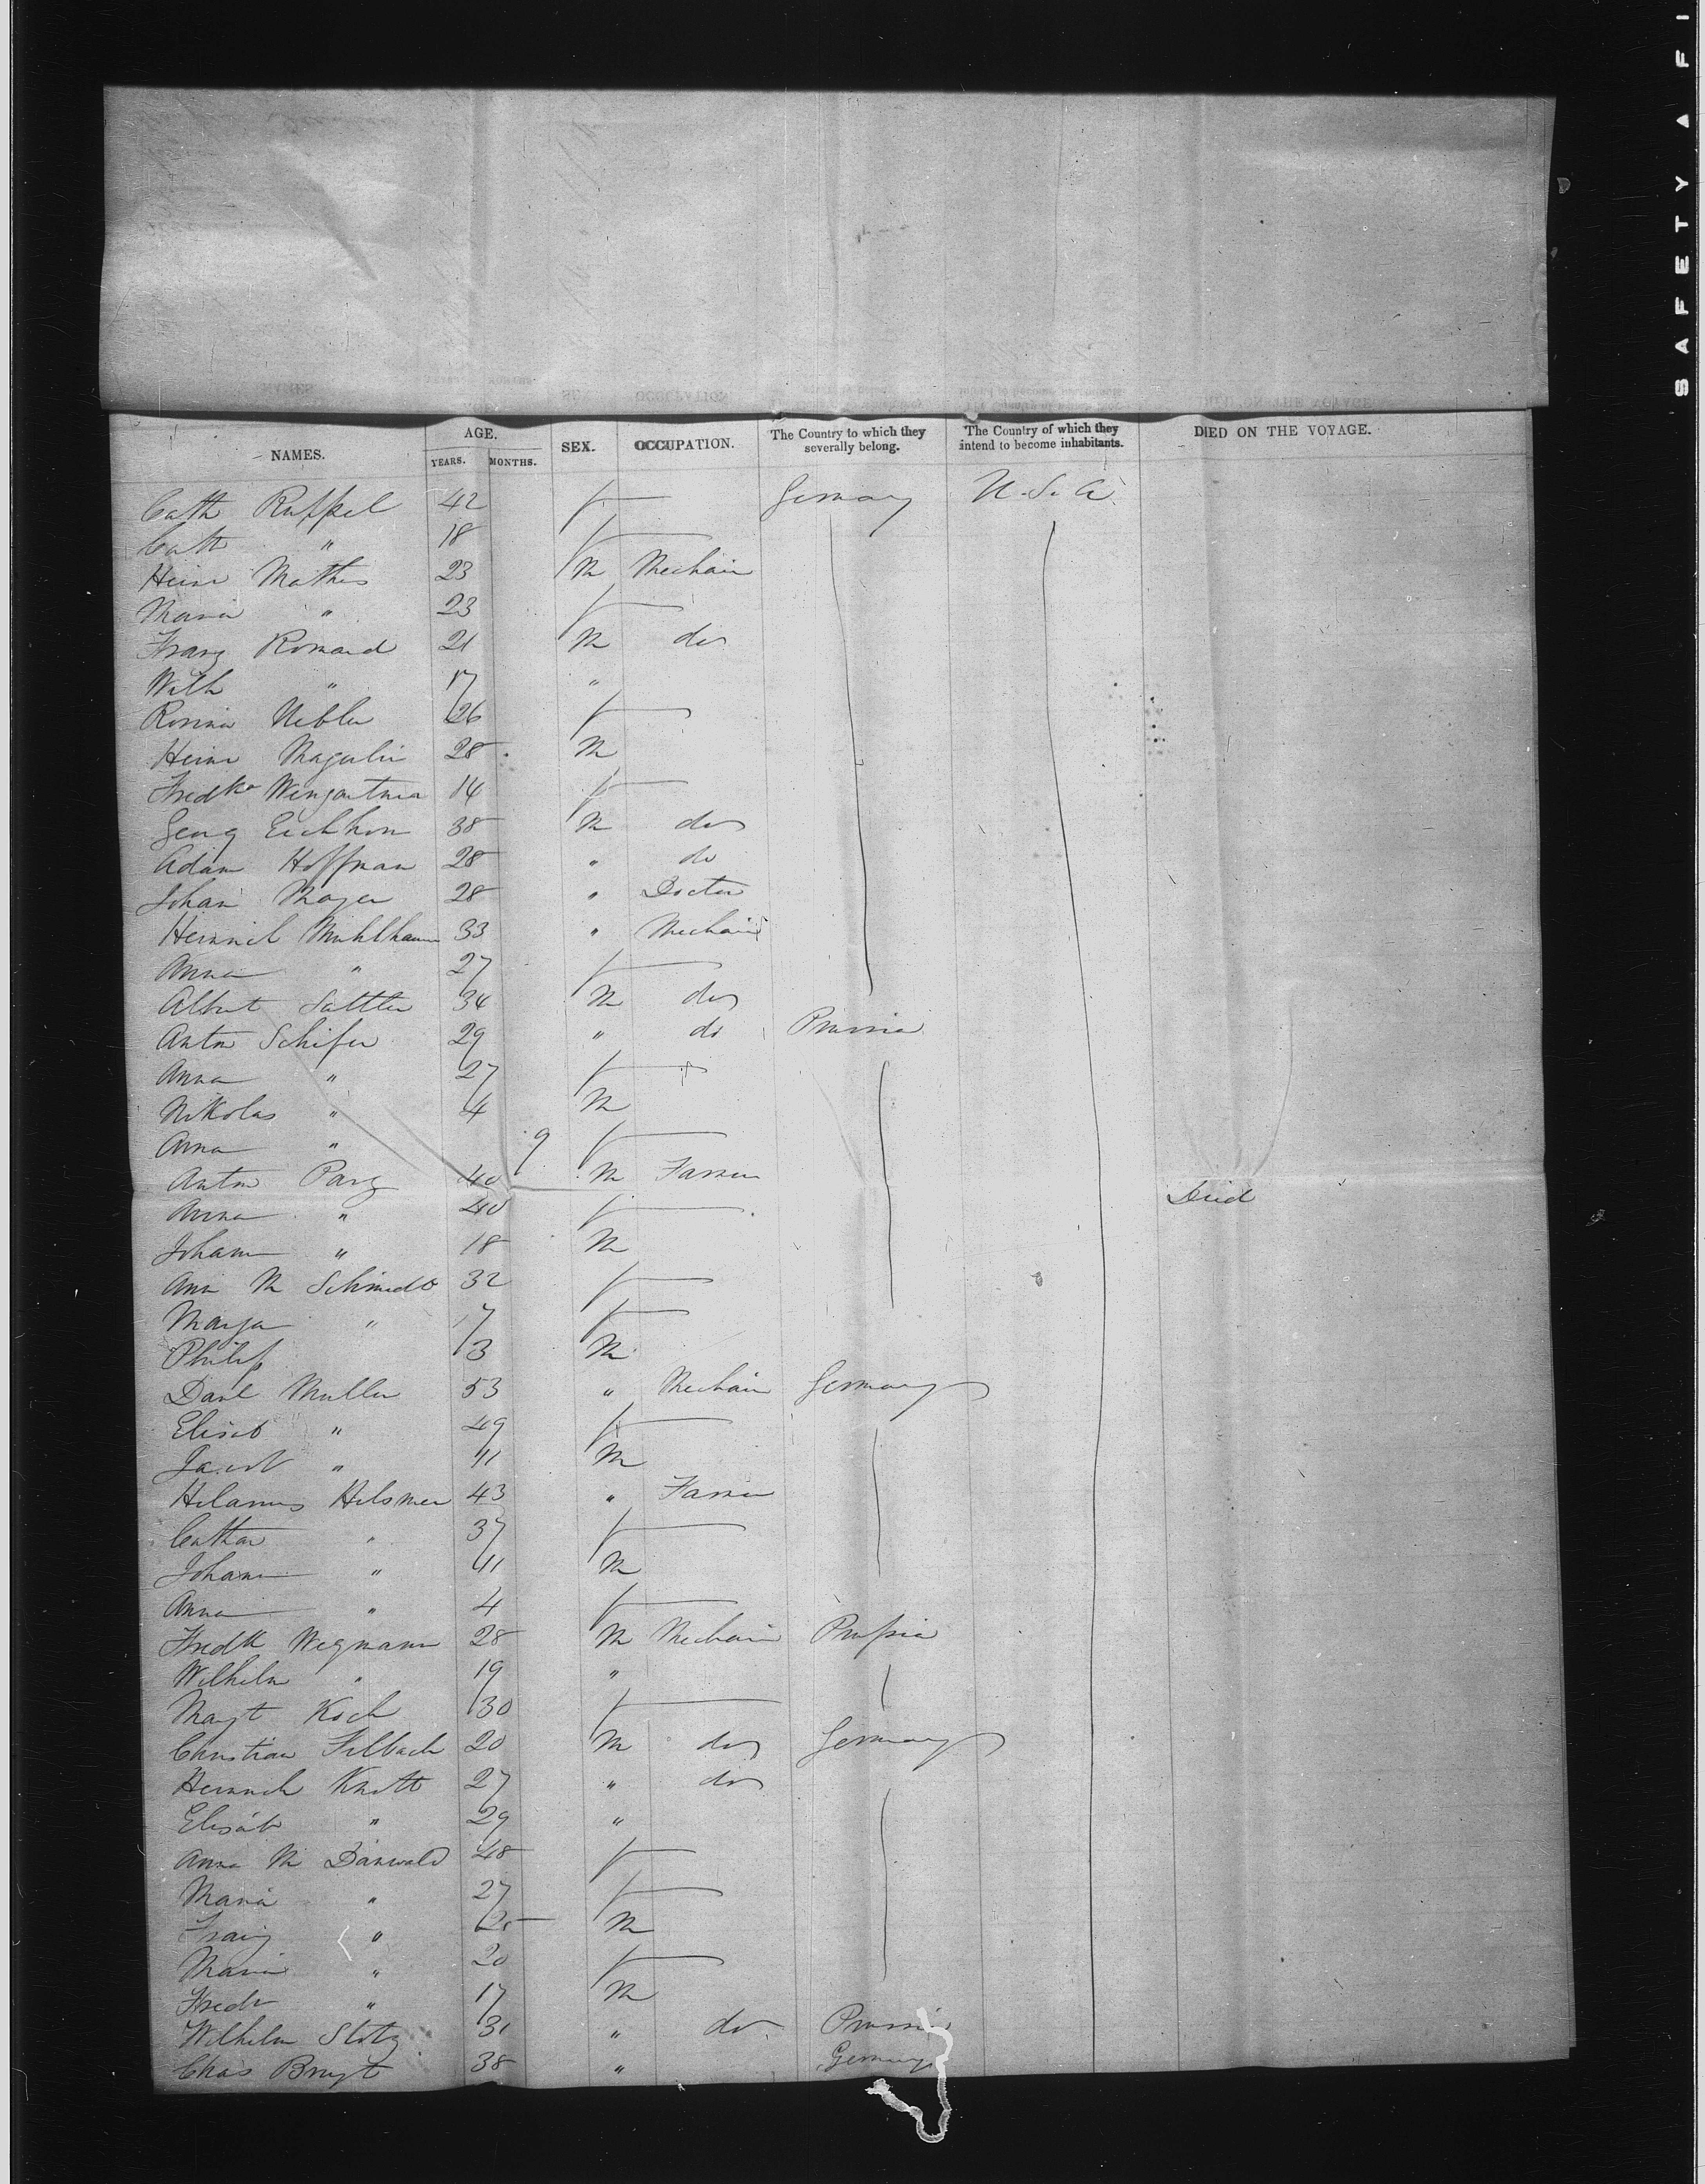 SAFETY A FI
NAMES. AGE. YEARS. MONTHS. SEX. OCCUPATION. The Country to which they severally belong. The Country of which they intend to become inhabitants. DIED ON THE VOYAGE.
Cath Ruppel 42 f Germany U.S.A
Cath " 18 f
Heinr Mathes 23 M Mechain
Maria " 23 f
Franz Romand 21 M do
Wilh " 17 "
Rosina Nebler 26 f
Heinr 28 M
Fredke 14 f
Georg Eichhorn 38 M do
Adam Hoffman 28 " do
Johan Mayer 28 " Doctor
Heinrich 33 " Mechain
Anna " 27 f
Albert Sattler 34 M do
Anton Schifer 29 " do Prussia
Anna " 27 f
Nikolas " 4 M
Anna " 9 f
Anton Parz 40 M Farmer
Anna " 40 f Died
Johann " 18 M
Ann M Schmidt 32 f
Marga " 7 f
Philip 3 M
Danl Muller 53 " Mechain Germany
Elisab " 49 f
Jacob " 11 M
Hilarius 43 " Farmer
Cathar " 37 f
Johann " 11 M
Anna " 4 f
Fredk Wegmann 28 M Mechain Prussia
Wilhelm " 19 "
Margt Koch 30 f
Christian Filbach 20 M do Germany
Heinrich Knott 27 " do
Elisab " 29 "
Anna M 48 f
Maria " 27 f
Franz " 25 M
Maria " 20 f
Fredr " 17 M
Wilhelm Stotz 31 " do Prussia
Chas 38 " Germany